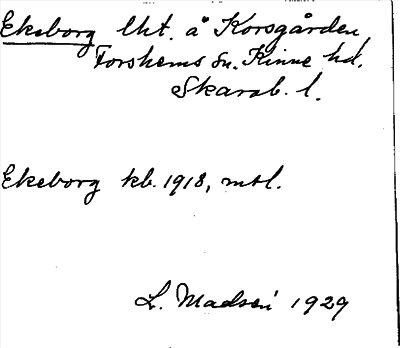 Ekeborg lht. å Korsgården,
Forshems sn. Kinne hd.
Skarab. l.
Ekeborg kb. 1918, mtl.
L. Madsén 1929